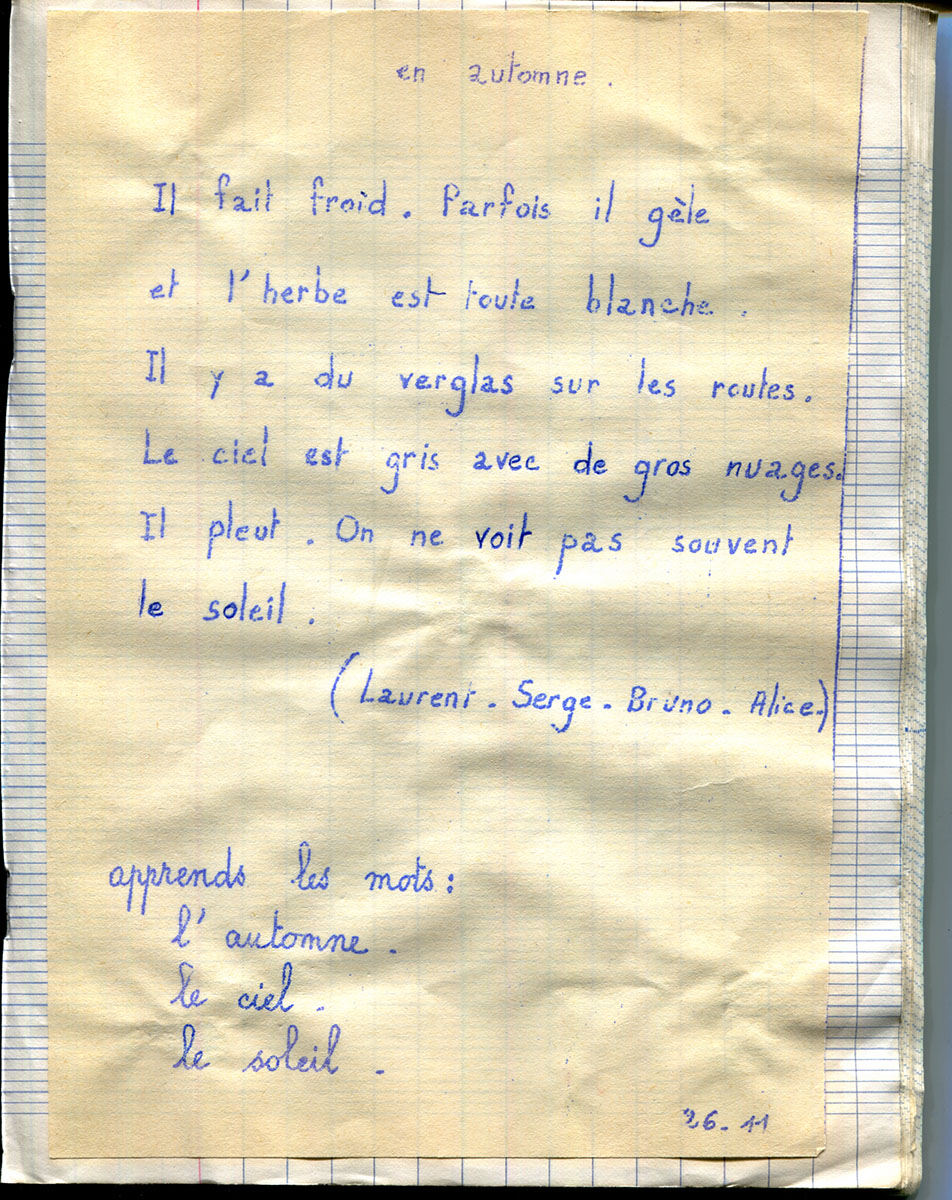 en automne.
Il fait froid. Parfois il gèle
et l'herbe est toute blanche.
Il y a du verglas sur les routes.
Le ciel est gris avec de gros nuages.
Il pleut. On ne voit pas souvent
le soleil.
(Laurent - Serge - Bruno - Alice.)
apprends les mots :
l'automne.
le ciel.
le soleil.
26-11